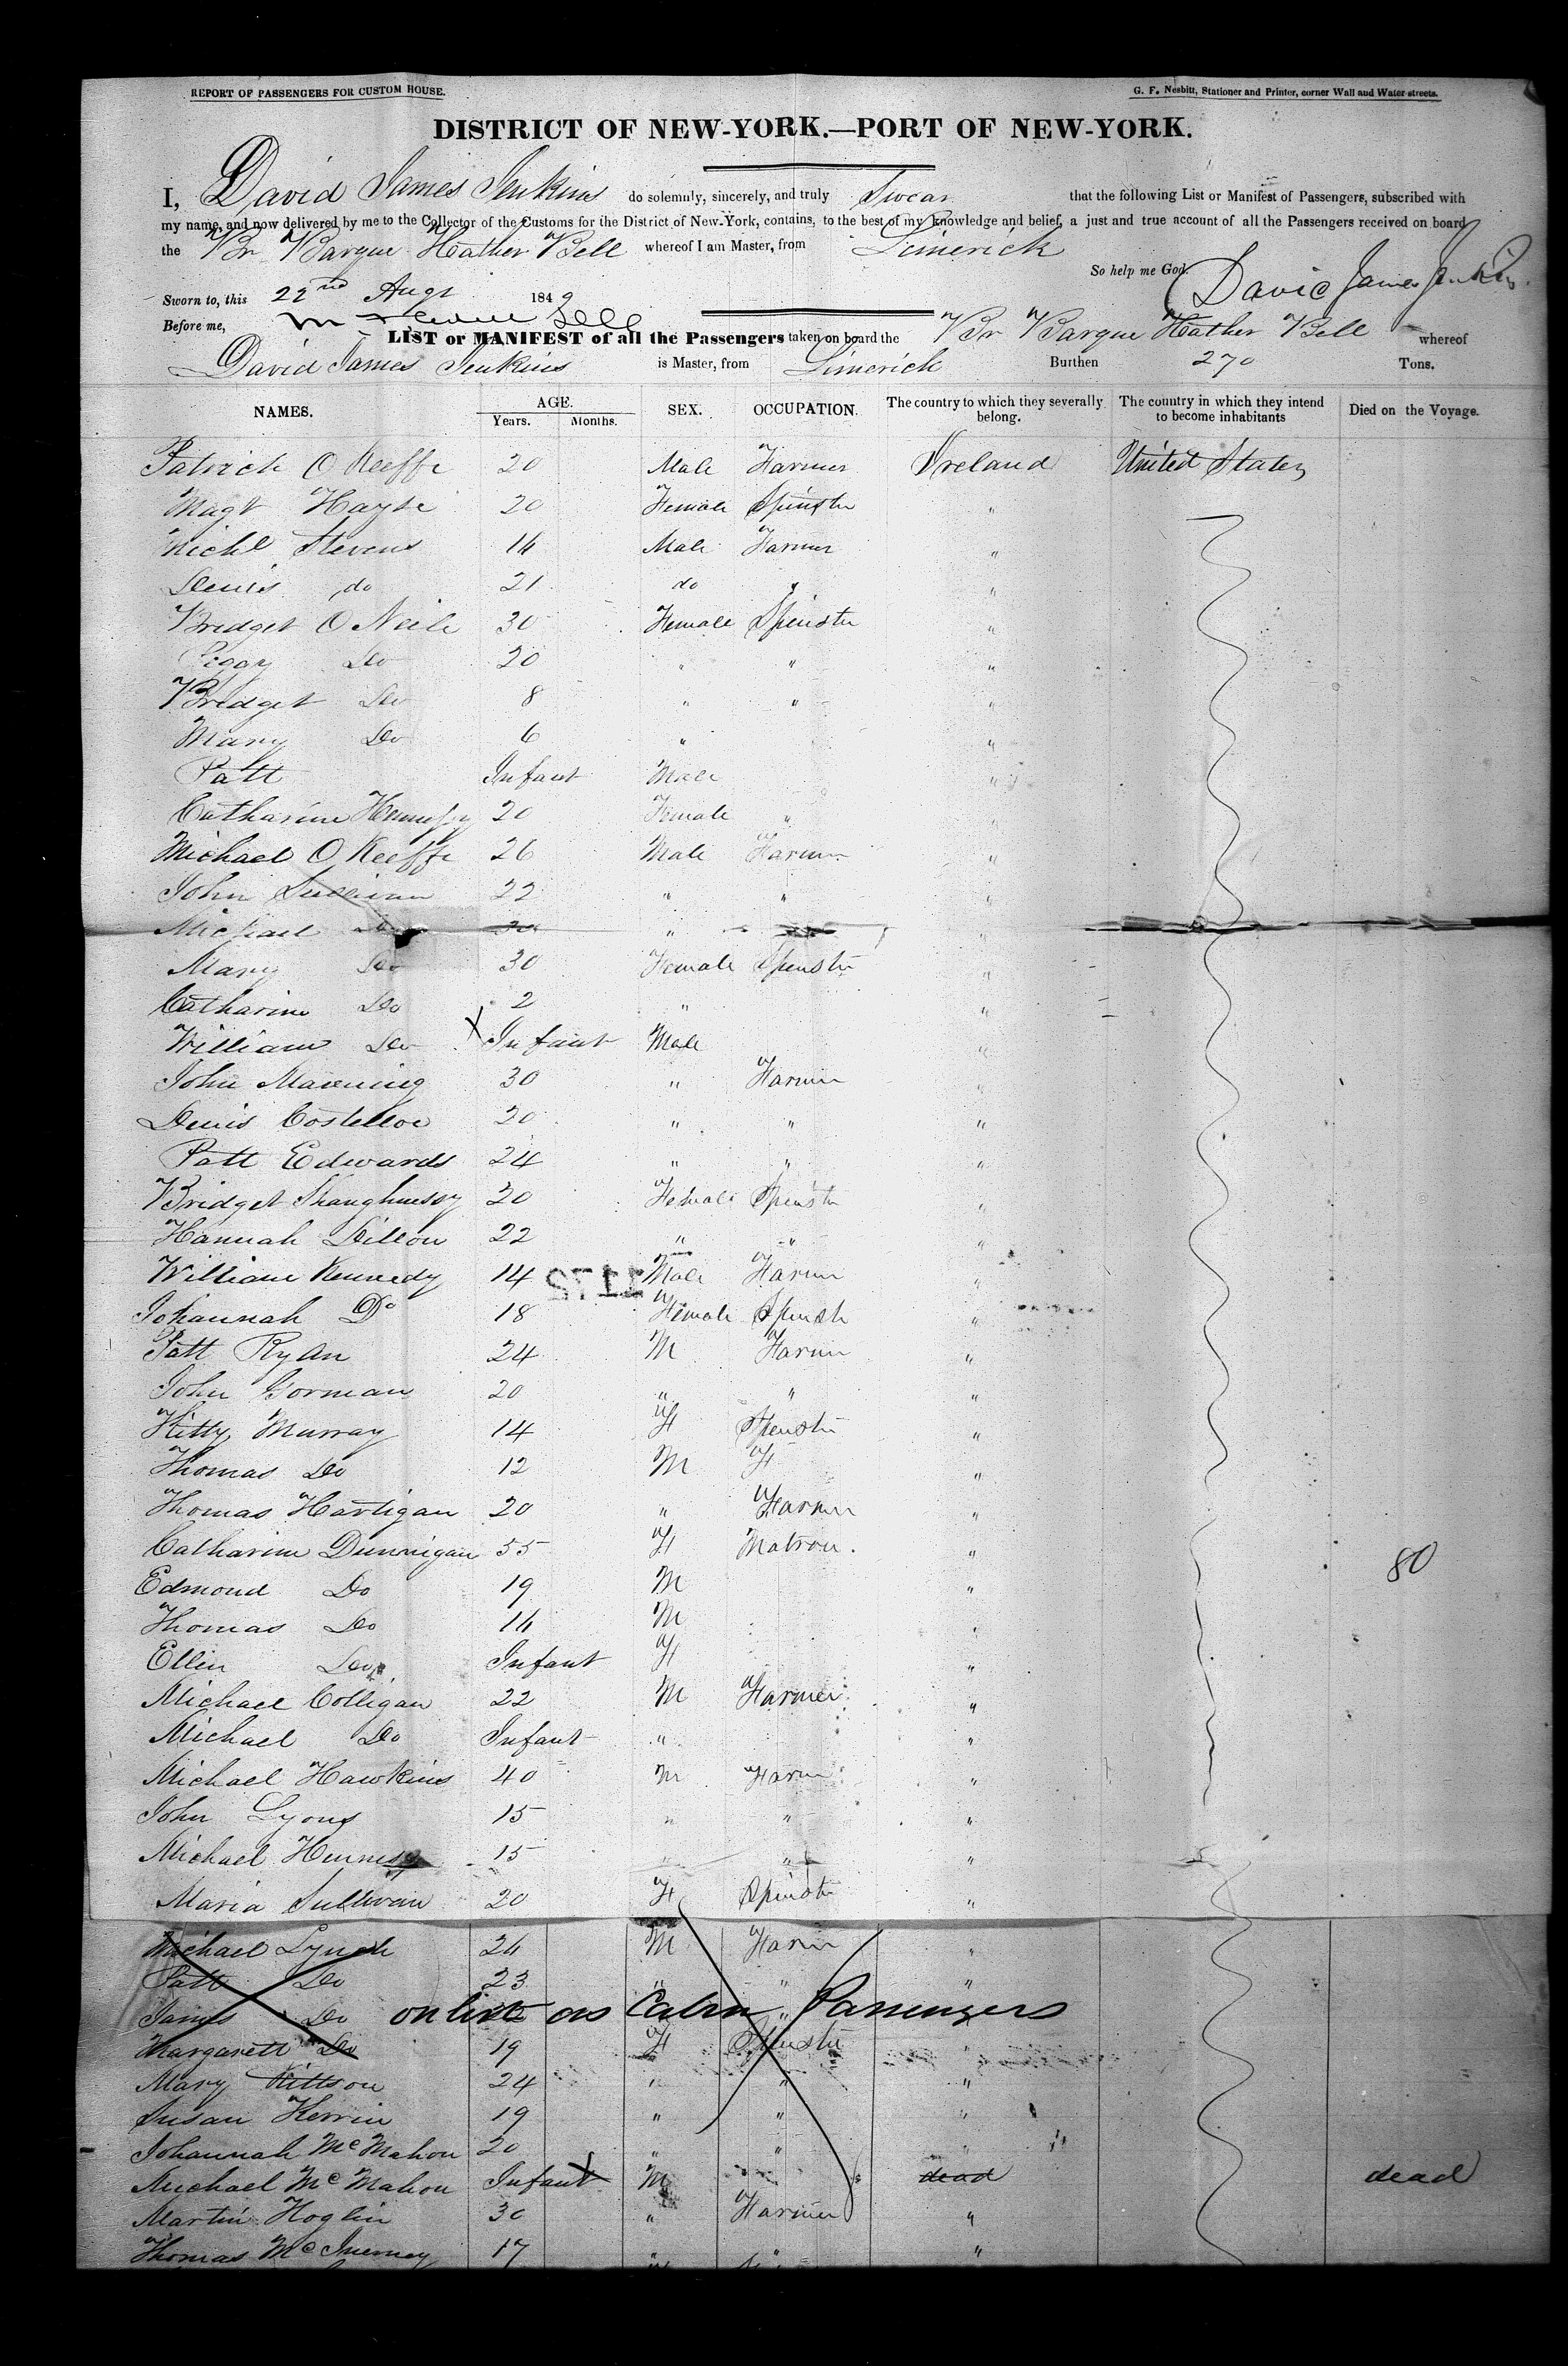 REPORT OF PASSENGERS FOR CUSTOM HOUSE. G. F. Nesbitt, Stationer and Printer, corner Wall and Water streets.
DISTRICT OF NEW-YORK.—PORT OF NEW-YORK.
I, David James Jenkins do solemnly, sincerely, and truly Swear that the following List or Manifest of Passengers, subscribed with
my name, and now delivered by me to the Collector of the Customs for the District of New-York, contains, to the best of my knowledge and belief, a just and true account of all the Passengers received on board
the Br Barque Heather Bell whereof I am Master, from Limerick
So help me God. David James Jenkins
Sworn to, this 22nd Augt 1849
Before me,
LIST or MANIFEST of all the Passengers taken on board the Br Barque Heather Bell whereof
David James Jenkins is Master, from Limerick Burthen 270 Tons.
NAMES. AGE. Years. Months. SEX. OCCUPATION. The country to which they severally belong. The country in which they intend to become inhabitants Died on the Voyage.
Patrick O Keeffe 20 Male Farmer Ireland United States
Magt Hayse 20 Female Spinster "
Michl Stevens 16 Male Farmer "
Denis do 21 do " "
Bridget O Neile 30 Female Spinster "
Peggy Do 20 " " "
Bridget Do 8 " " "
Mary Do 6 " "
Patt Infant Male "
Catharine Hennessy 20 Female " "
Michael O Keeffe 26 Male Farmer "
John Sullivan 22 " " "
Michael Do 20 " "
Mary Do 30 Female Spinster "
Catharine Do 2 " "
William Do X Infant Male "
John Manning 30 " Farmer "
Denis Costelloe 20 " " "
Patt Edwards 24 " " "
Bridget Shaughnessy 20 Female Spinster "
Hannah Dillon 22 " " "
William Kennedy 14 Male Farmer "
Johannah Do 18 Female Spinster "
Patt Ryan 24 M Farmer "
John Gorman 20 " " "
Kitty Murray 14 F Spinster "
Thomas Do 12 M F "
Thomas Hartigan 20 " Farmer "
Catharine Dunnigan 55 F Matron. " 80
Edmond Do 19 M "
Thomas Do 16 M "
Ellin Do Infant F "
Michael Colligan 22 M Farmer "
Michael Do Infant " "
Michael Hawkins 40 M Farm "
John Lyons 15 " " "
Michael Hennesy 15 " " "
Maria Sullivan 20 F Spinster "
Michael Lynch 26 M Farm "
Patt Do 23 " " "
James Do "
on list as Cabin Passengers
Margarett Do 19 F Spinster "
Mary Kittson 24 " " "
Susan Kerrin 19 " " "
Johannah McMahon 20 " " "
Michael McMahon Infant X M dead dead
Martin Hoglin 30 " Farmer "
Thomas McInerney 17 " " "